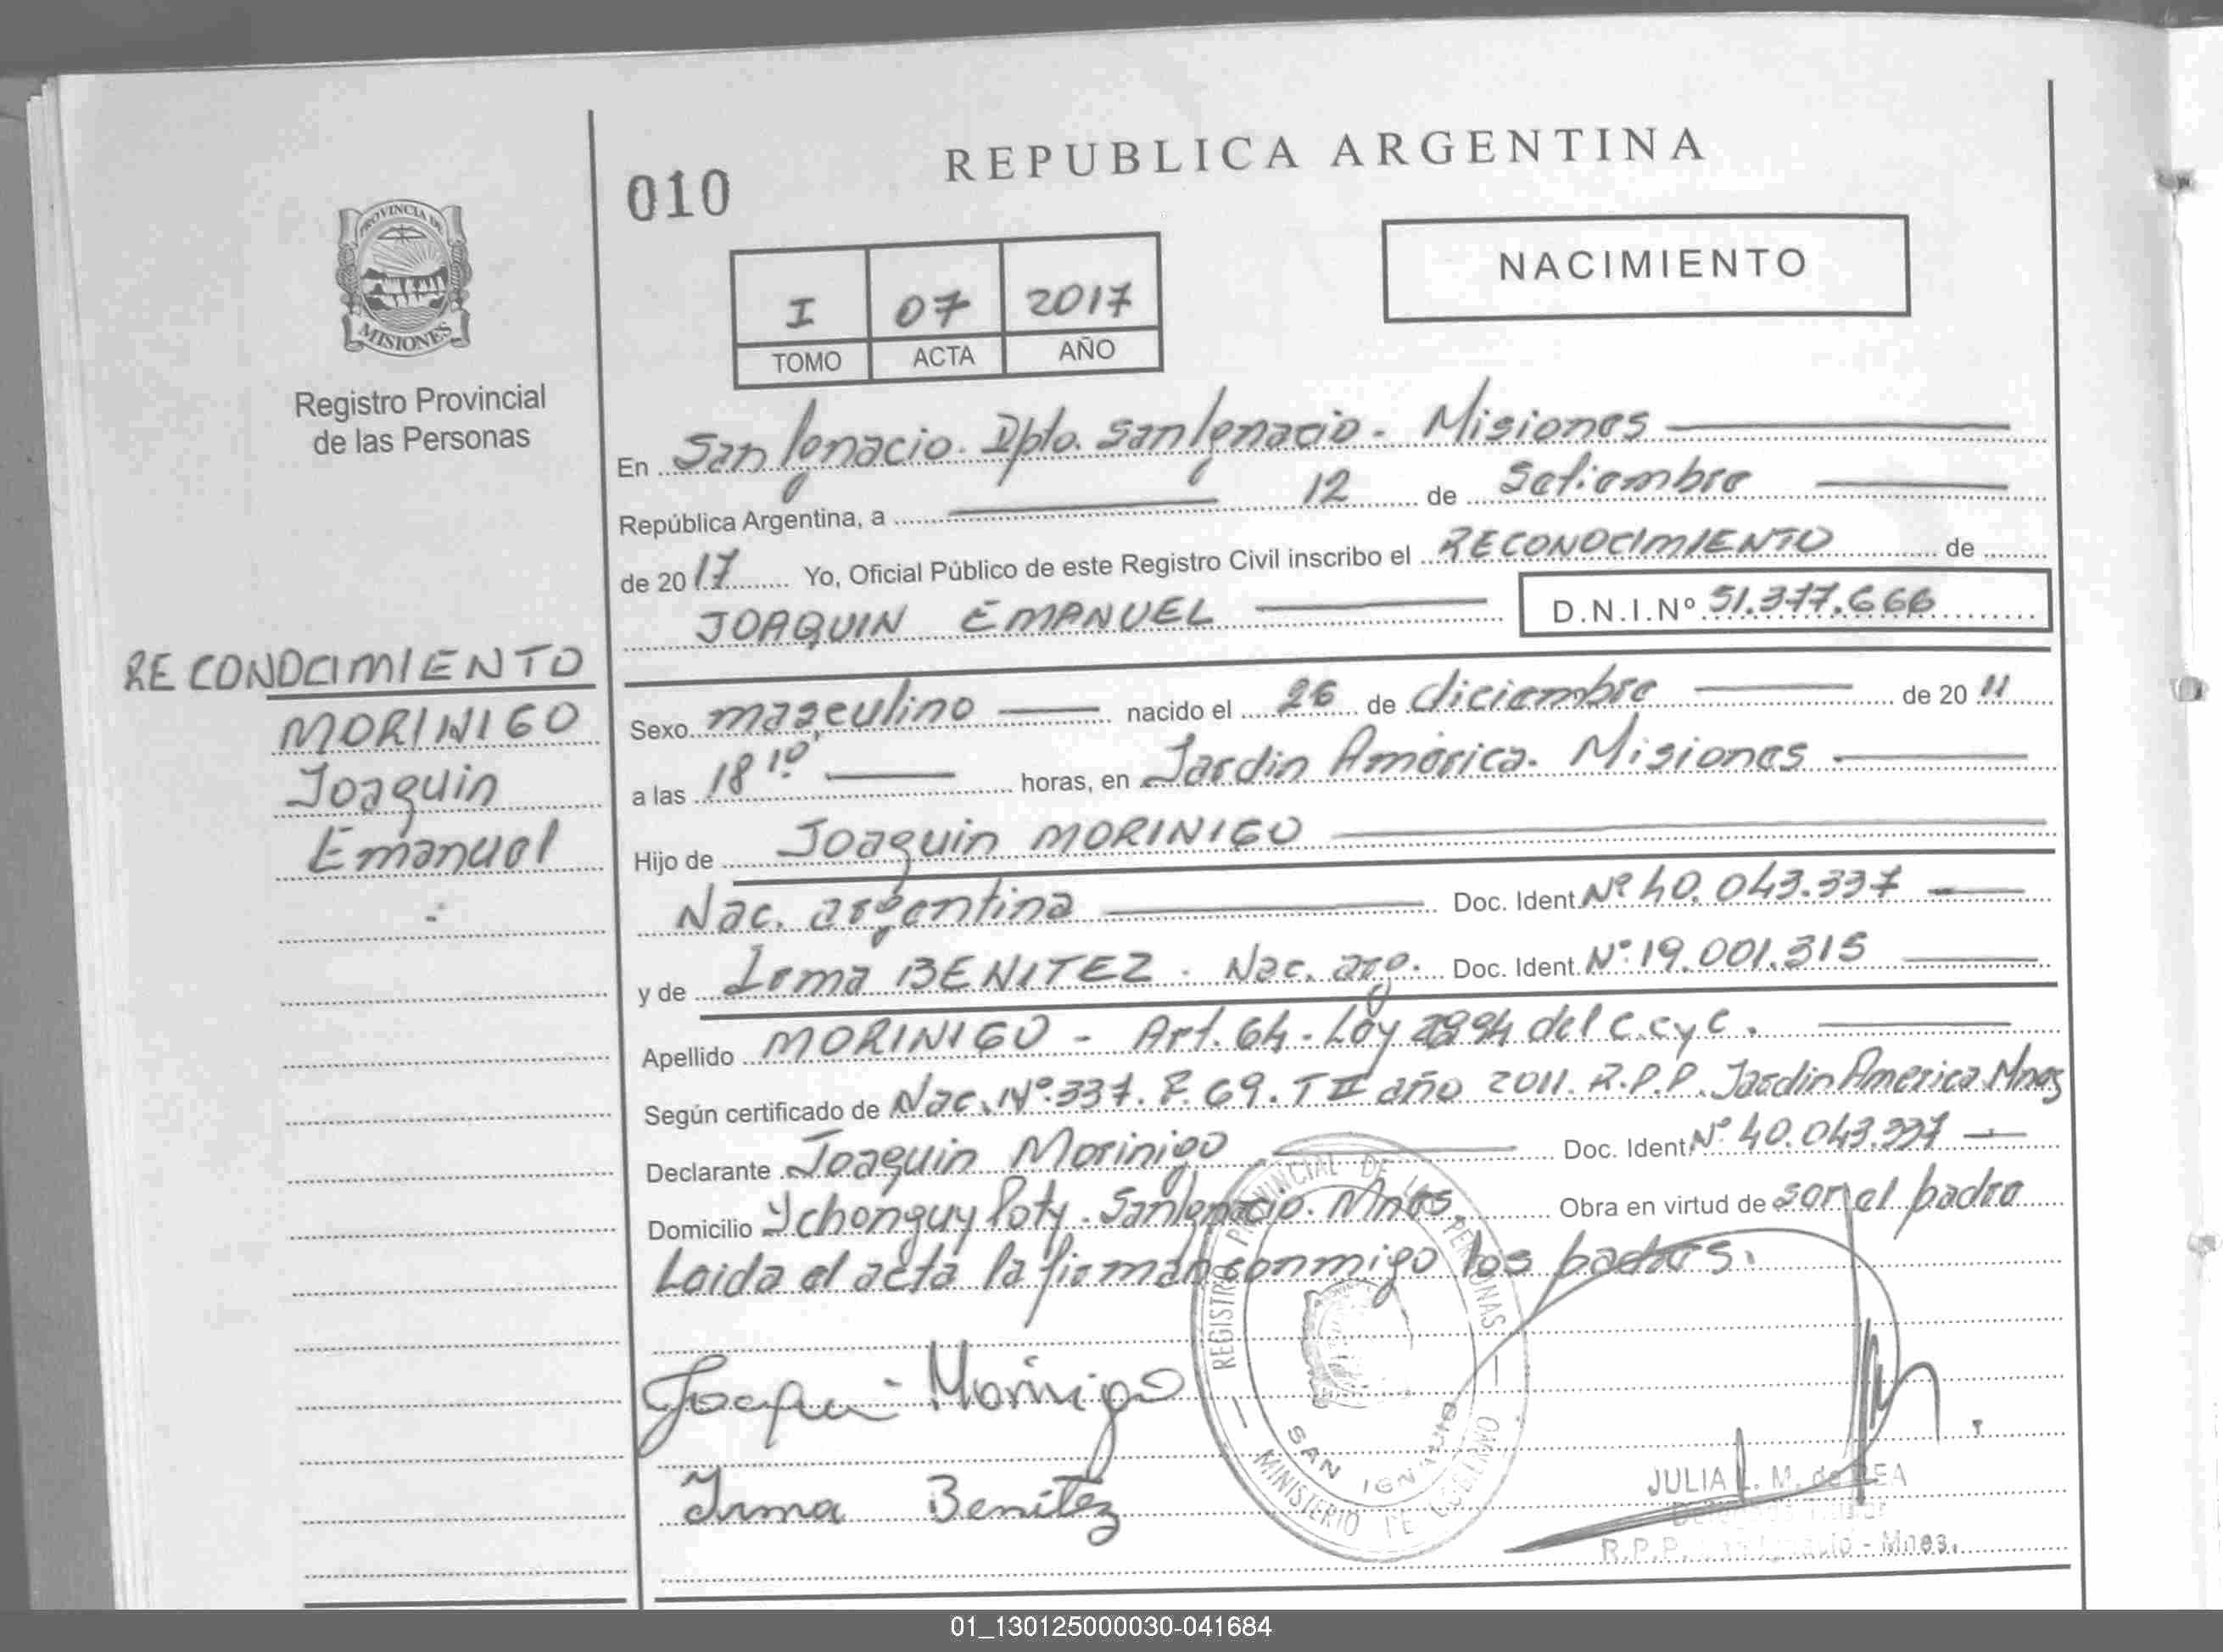 REPUBLICA ARGENTINA
010
NACIMIENTO
I 07 2017
TOMO ACTA AÑO
PROVINCIA DE
MISIONES
Registro Provincial
de las Personas
En San Ignacio. Dpto. San Ignacio - Misiones
República Argentina, a 12 de Setiembre
de 2017 Yo, Oficial Público de este Registro Civil inscribo el RECONOCIMIENTO de
JOAQUIN EMANUEL D.N.I.Nº 51.377.666
RECONOCIMIENTO
MORINIGO
Joaquin
Emanuel
Sexo masculino nacido el 26 de diciembre de 2011
a las 18 10 horas, en Jardin América. Misiones
Hijo de Joaquin MORINIGO
Nac. argentina Doc. Ident. Nº 40.043.337
y de Irma BENITEZ. Nac. arg. Doc. Ident. Nº 19.001.315
Apellido MORINIGO - Art. 64. Ley del C.C y C.
Según certificado de Nac. Nº 337. F. 69. T II año 2011. R.P.P. Jardin America Mnes
Declarante Joaquin Morinigo Doc. Ident. Nº 40.043.337
Domicilio Ychonguy Poty. San Ignacio. Mnes. Obra en virtud de ser el padre
Leida el acta la firman conmigo los padres.
Joaqui Morinigo
Irma Benitez
REGISTRO PROVINCIAL DE LAS PERSONAS
MINISTERIO DE GOBIERNO
SAN IGNACIO
JULIA M. de
R.P.P. San Ignacio - Mnes.
01_130125000030-041684